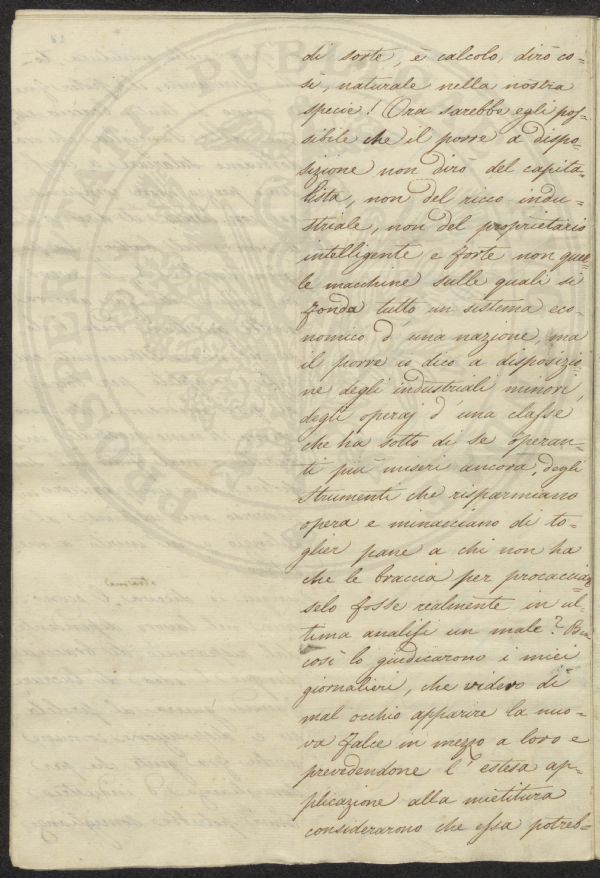 di sorte, è calcolo, dirò co=
sì, naturale nella nostra
specie! Ora sarebbe egli pos=
sibile che il porre a dispo=
sizione non dirò del capita=
lista, non del ricco indu=
striale, non del proprietario
intelligente e forte non quel=
le macchine sulle quali si
fonda tutto un sistema eco=
nomico d'una nazione, ma
il porre io dico a disposizio=
ne degli industriali minori,
degli operaj d'una classe
che ha sotto di se operan=
ti più miseri ancora, degli
strumenti che risparmiano
opera e minacciano di to=
glier pane a chi non ha
che le braccia per procacciar=
selo fosse realmente in ul=
tima analisi un male? Ben
così lo giudicarono i miei
giornalieri, che videro di
mal occhio apparire la nuo=
va falce in mezzo a loro e
prevedendone l'estesa ap=
plicazione alla mietitura
considerarono che essa potreb=
PROPERIATI PVBLICA